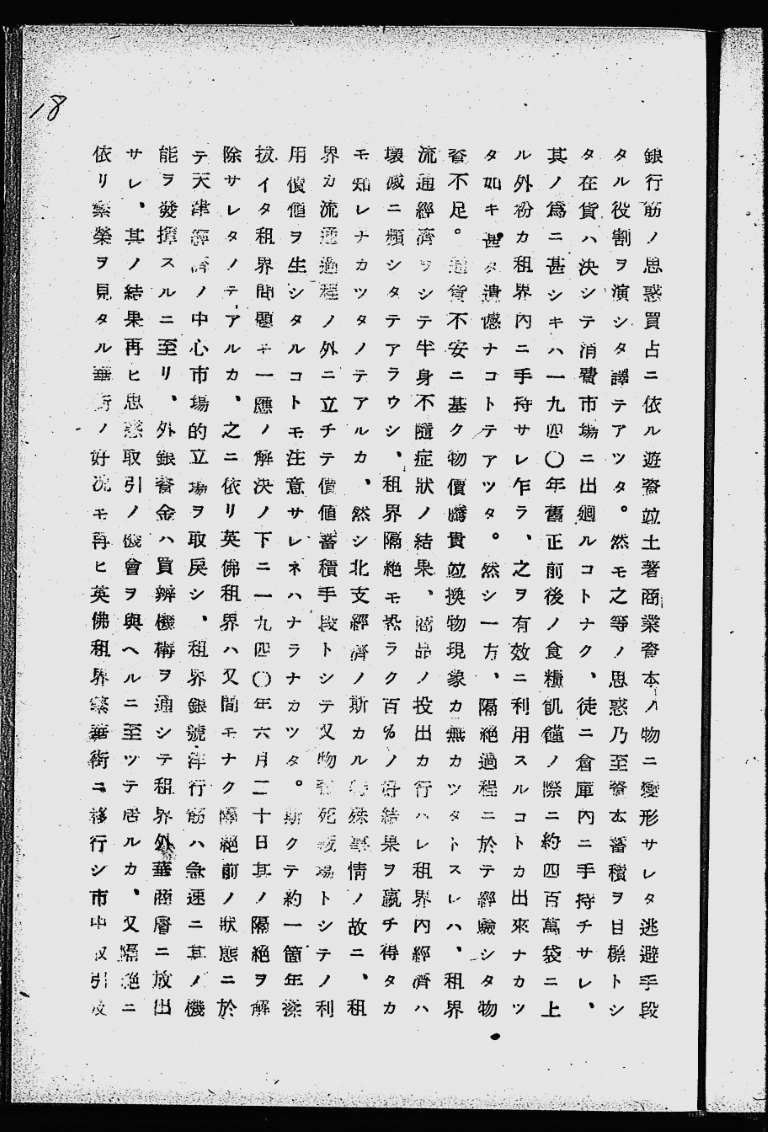 18
銀行筋ノ思惑買占ニ依ル遊資竝土著商業資本ノ物ニ變形サレタ逃避手段
タル役割ヲ演シタ譯テアツタ。然モ之等ノ思惑乃至資本蓄積ヲ目標トシ
タ在貨ハ決シテ消費市場ニ出廻ルコトナク、徒ニ倉庫內ニ手持チサレ、
其ノ爲ニ甚シキハ一九四〇年舊正前後ノ食糧飢饉ノ際ニ約四百萬袋ニ上
ル外粉カ租界內ニ手持サレ乍ラ、之ヲ有效ニ利用スルコトカ出來ナカツ
タ如キ甚タ遺憾ナコトテアツタ。然シ一方、隔絶過程ニ於テ經驗シタ物
資不足。通貨不安ニ基ク物價騰貴竝換物現象カ無カツタトスレハ、租界
流通經濟ヲシテ半身不隨症狀ノ結果、商品ノ投出カ行ハレ租界內經濟ハ
壞滅ニ瀕シタテアラウシ、租界隔絶モ恐ラク百%ノ好結果ヲ贏チ得タカ
モ知レナカツタノテアルカ、然シ北支經濟ノ斯カル特殊事情ノ故ニ、租
界カ流通過程ノ外ニ立チテ價値蓄積手段トシテ又物資死藏場トシテノ利
用價値ヲ生シタルコトモ注意サレネハナラナカツタ。斯クテ約一箇年漆
拔イタ租界問題モ一應ノ解決ノ下ニ一九四〇年六月二十日其ノ隔絶ヲ解
除サレタノテアルカ、之ニ依リ英佛租界ハ又間モナク隔絶前ノ狀態ニ於
テ天津經濟ノ中心市場的立場ヲ取戾シ、租界銀號洋行筋ハ急速ニ其ノ機
能ヲ發揮スルニ至リ、外銀資金ハ買辨機構ヲ通シテ租界外華商層ニ放出
サレ、其ノ結果再ヒ思惑取引ノ機會ヲ與ヘルニ至ツテ居ルカ、又隔絶ニ
依リ繁榮ヲ見タル華街ノ好況モ再ヒ英佛租界繁華街ニ移行シ市中取引及